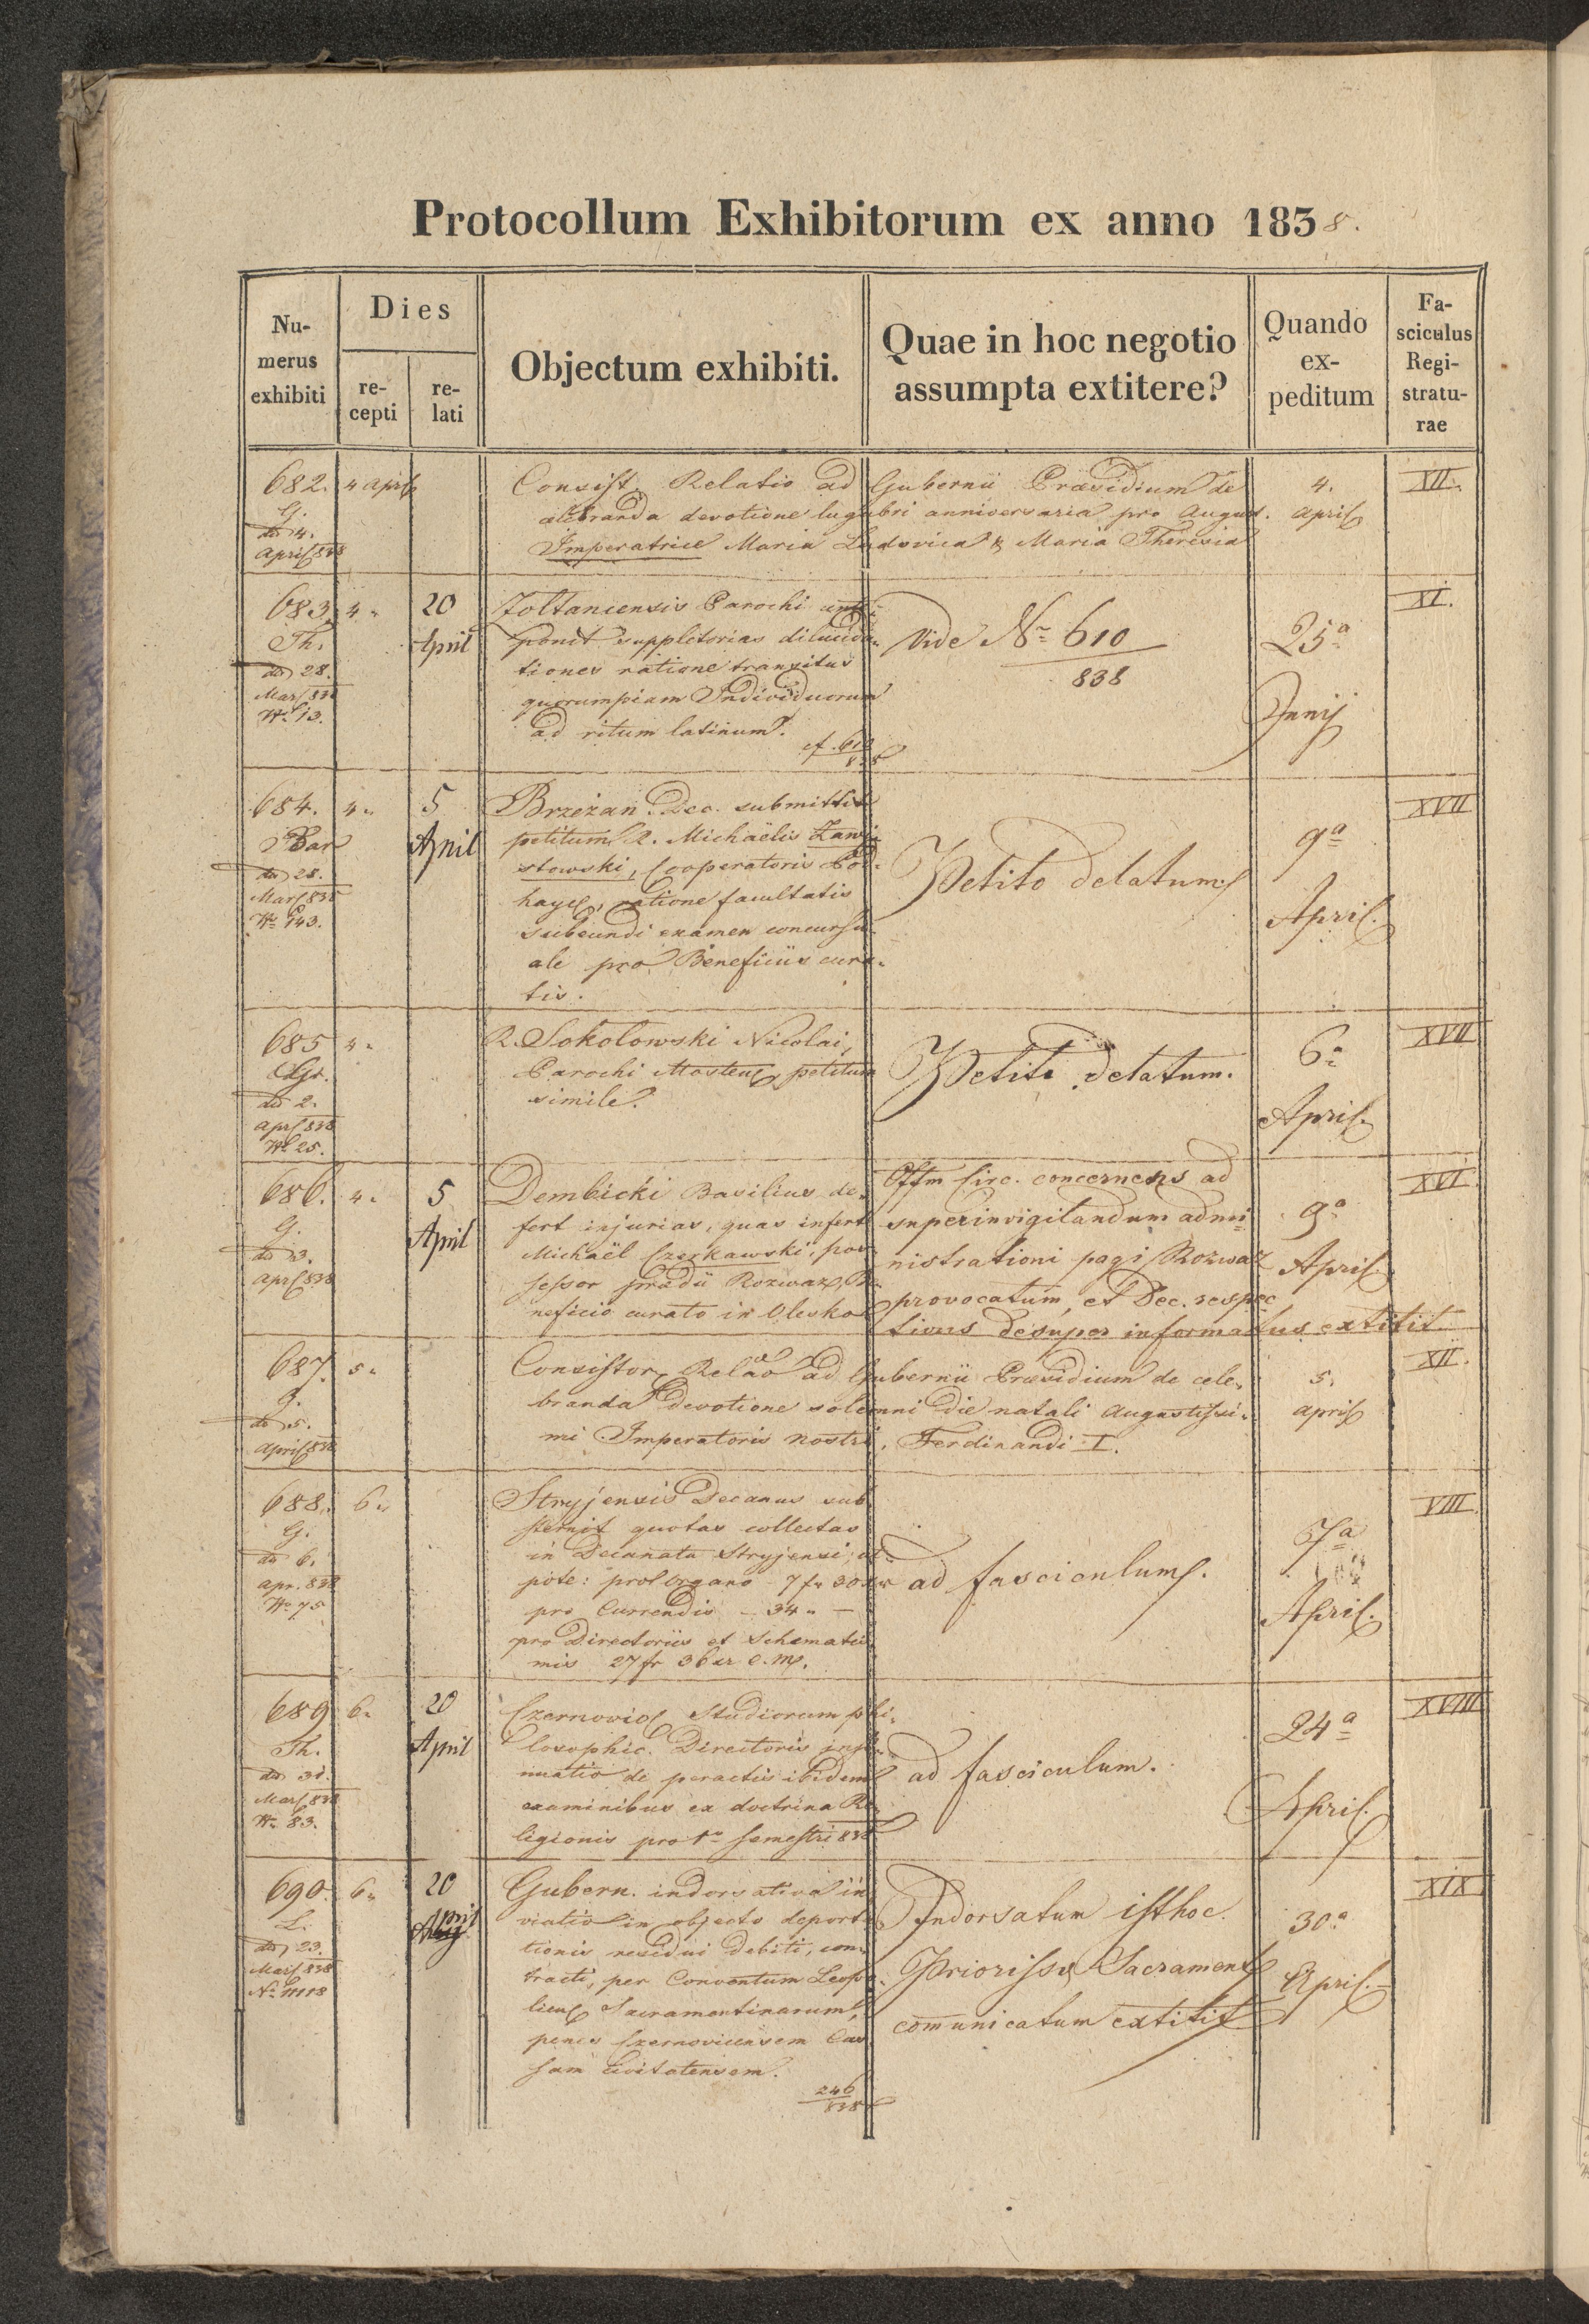 Protocollum Exhibitorum ex anno 1838.
Numerus exhibiti
Dies
recepti
relati
Objectum exhibiti.
Quae in hoc negotio assumpta extitere?
Quando expeditum
Fasciculus Registraturae
682. 4 April
G.
dd 4.
April 838
Consist. Relatio ad Gubernii Præsidium de
celebranda devotione lugubri anniversaria pro August.
Imperatrice Maria Ludovica & Maria Theresia
4.
April
XII.
683. 4. 20 April
Th.
dd 28.
Mar 838
No 13.
Zoltaniensis Parochi
ponit suppletorias dilucida-
tiones ratione transitus
quorumpiam Individuorum
ad ritum latinum.
cf. 610
838
Vide No 610
838
25a
Junij
XI.
684. 4. 5 April
Bar
dd 28.
Mar 838
No 143.
Brzeżan. Dec. submittit
petitum R. Michaëlis Zawi-
stowski, Cooperatoris Pod-
hayc, ratione facultatis
subeundi examen concursu-
ale pro Beneficiis cura-
tis.
Petito delatum
9a
April.
XVII
685 4.
dd 2.
Apr 838
No 25.
R. Sokolowski Nicolai,
Parochi Mosten, petitum
simile.
Petito delatum.
6a
April.
XVII
686. 4. 5 April
G.
dd 3.
Apr 838
Dembicki Basilius de-
fert injurias, quas infert
Michaël Czerkawski, pos-
sessor prædii Rozwaz, Be-
neficio curato in Olesko
Offm Circ. concernens ad
superinvigilandum admi-
nistrationi pagi Rozwaz
provocatum, et Dec. respec
tivus desuper informatus extitit.
9a
April
XVI.
687. 5.
G.
dd 5.
April 838
Consistor. Relao ad Gubernii Præsidium de cele-
branda devotione solemni die natali Augustissi-
mi Imperatoris nostri, Ferdinandi I.
5.
April
XII.
688. 6.
G.
dd 6.
Apr. 838
No 75
Stryjensis Decanus sub
sternit quotas collectas
in Decanatu Stryjensi, ut-
pote: pro Organo 7 fr 30 xr
pro Currendis — 34 " —
pro Directoriis et Schematis-
mis 27 fr 36 xr C.M.
ad fasciculum.
7a
April.
VIII
689 6. 20 April
Th.
dd 31.
Mar 838
No 83.
Czernovic Studiorum phi-
losophic. Directoris insi-
nuatio de peractis ibidem
examinibus ex doctrina Re-
ligionis pro 1o Semestri 838
ad fasciculum.
24a
April.
XVIII
690. 6. 20 April
L.
dd 23.
Mar 838
No 11118
Gubern. indorsativa in
viatio in objecto deporta-
tionis residui debiti, con-
tracti, per Conventum Leopo-
lien Sacramentinarum,
penes Czernoviciensem Cas-
sam Civitatensem.
246
838
Indorsatum isthoc.
Priorissæ Sacrament
comunicatum extitit
30a
April.
XIX